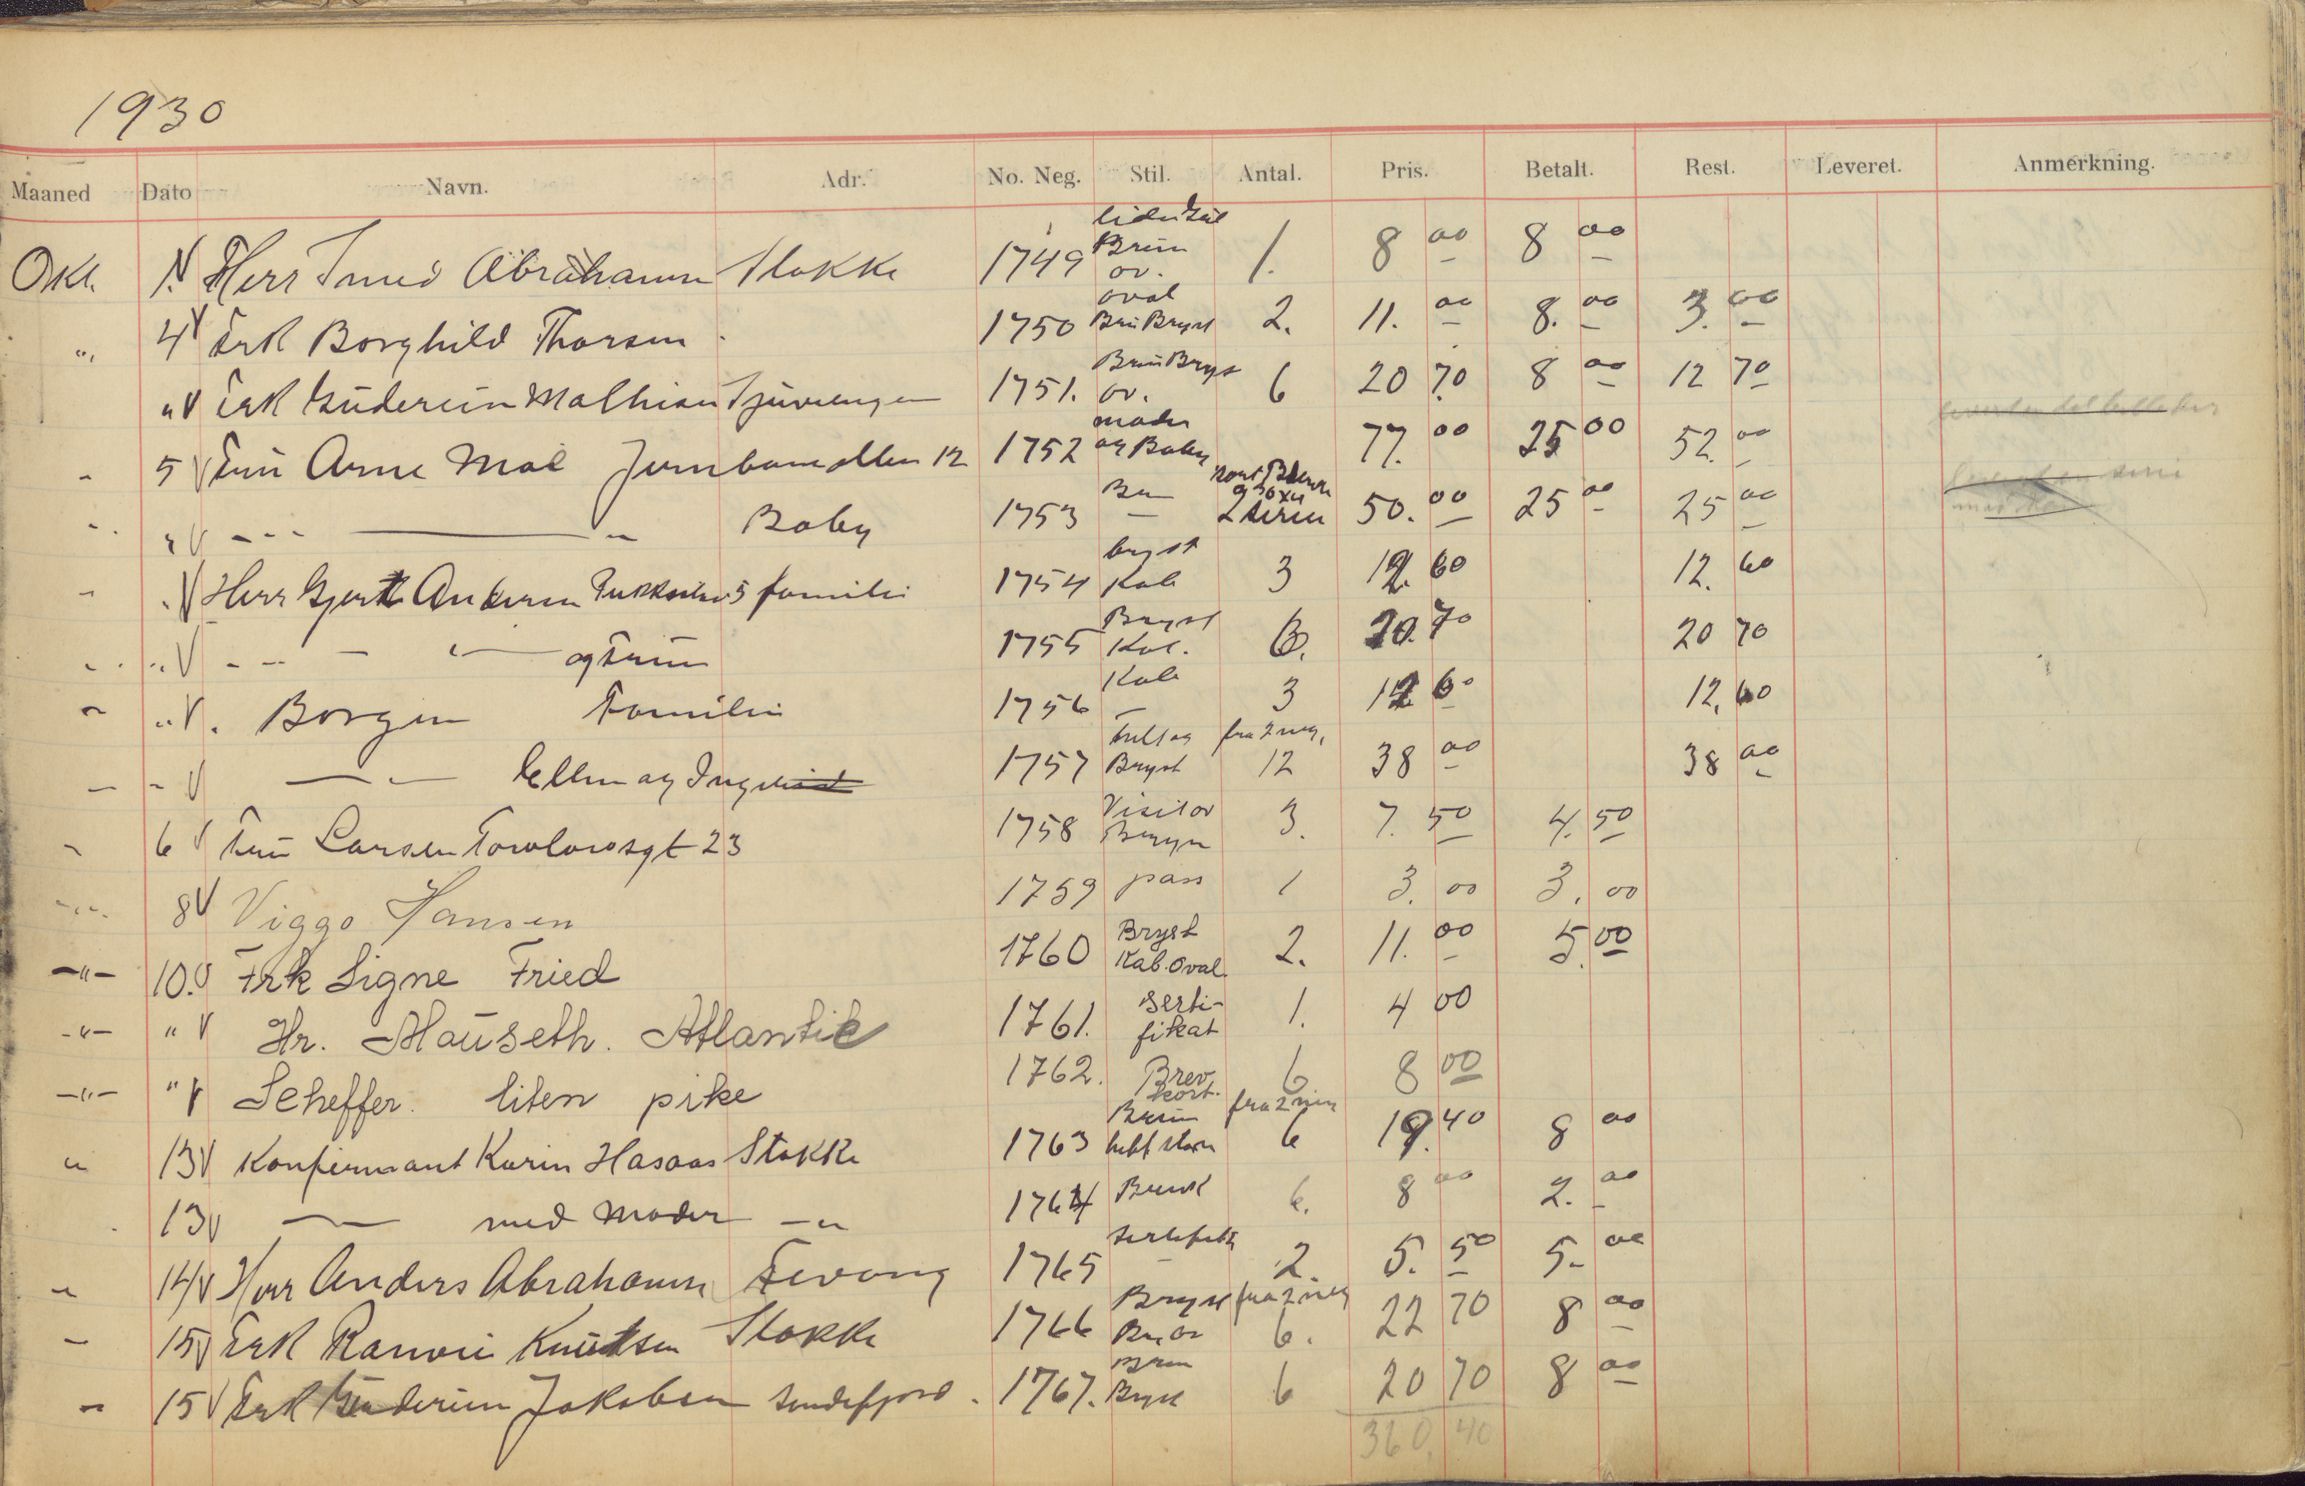 1930
Maaned Dato Navn. Adr. No. Neg. Stil. Antal. Pris. Betalt. Rest. Leveret. Anmerkning.
Okt. 1. Herr Abrahamsen Stokke 1749 Brun ov. 1. 8 00 8 00
" 4 Frk Borghild Thorsen 1750 oval Brü Bryst 2. 11. 00 8. 00 3. 00
" Frk 1751. Brün Bryst ov. 6 20 70 8 00 12 70
" 5 Frü Arne Moe Jernbanealleen 12 1752 moder og Baby 77. 00 25 00 52. 00
" " Baby 1753 50. 00 25 00 25 00
" Herr Andersen 5 familie 1754 bryst Kab 3 12. 60 12. 60
" " og Früe 1755 Bryst Kab. 6. 20. 70 20 70
" " Borgen Familie 1756 Kab 3 12 60 12. 60
" " Ellen og 1757 Bryst fra 2 neg. 12 38 00 38 00
" 6 Frü Larsen 23 1758 Visit ov 3. 7. 50 4. 50
" 8 Viggo Hansen 1759 pass 1 3. 00 3. 00
" 10. Frk Signe Fried 1760 Bryst Kab. Oval. 2. 11. 00 5. 00
" " Hr. Mauseth. Atlantic 1761. Serti- fikat 1. 4 00
" " Scheffer. liten pike 1762. Brev kort. 6 8 00
" 13 Konfirmant Karin Hasaas Stokke 1763 Brün fra 2 neg 6 19. 40 8 00
13 med Moder " 1764 6. 8 00 2. 00
" 14 Herr Anders Abrahamsen Fevang 1765 2. 5. 50 5. 00
" 15 Frk Ranvei Knutsen Stokke 1766 Bryst fra 2 neg 6. 22 70 8 00
" 15 Frk Jakobsen Sandefjord. 1767. Brun Bryst 6 20 70 8 00
360. 40